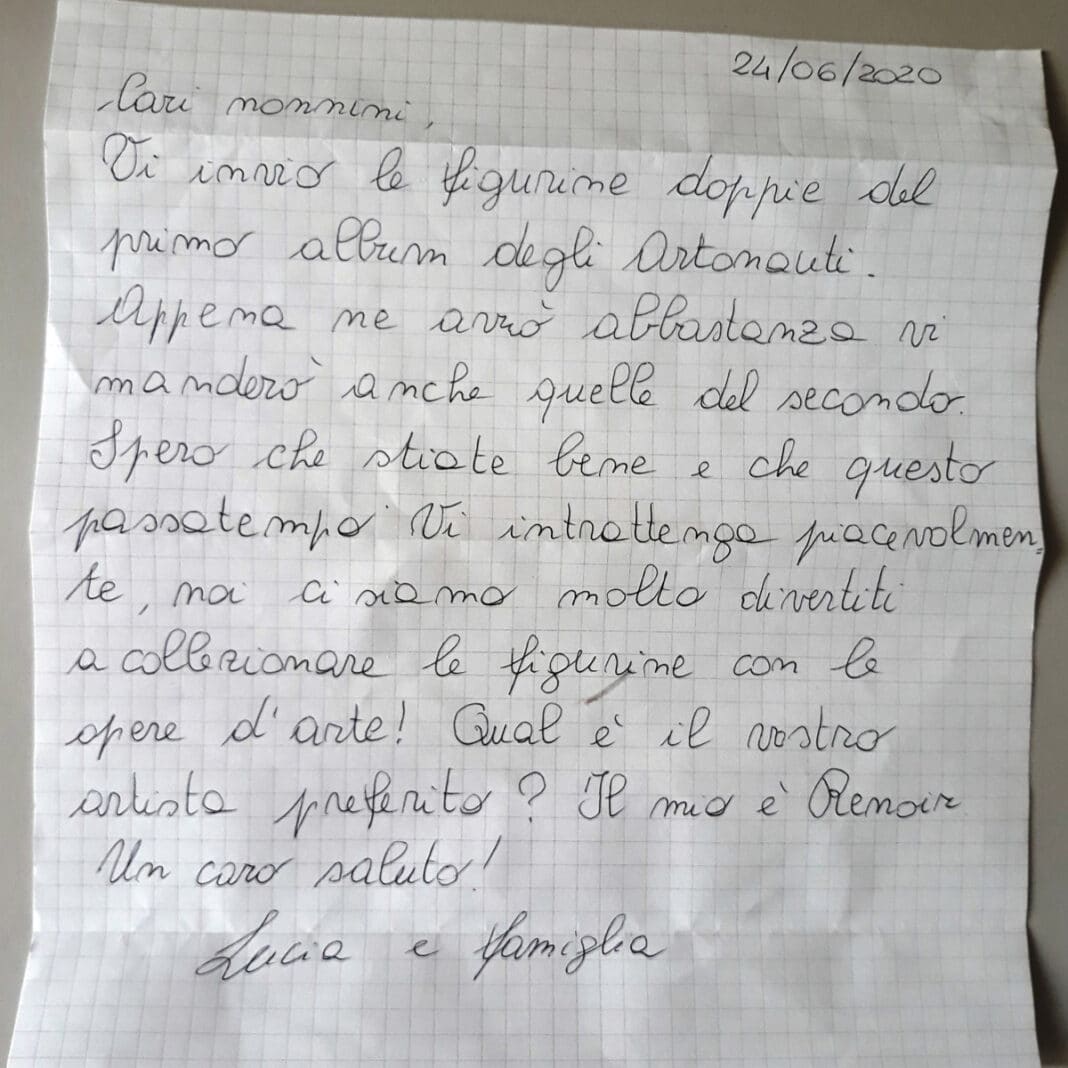 24/06/2020
Cari nonnini,
Vi invio le figurine doppie del
primo album degli Artonauti.
Appena ne avrò abbastanza vi
manderò anche quelle del secondo.
Spero che stiate bene e che questo
passatempo Vi intrattenga piacevolmen,
te, noi ci siamo molto divertiti
a collezionare le figurine con le
opere d'arte! Qual è il vostro
artista preferito? Il mio è Renoir
Un caro saluto!
Lucia e famiglia